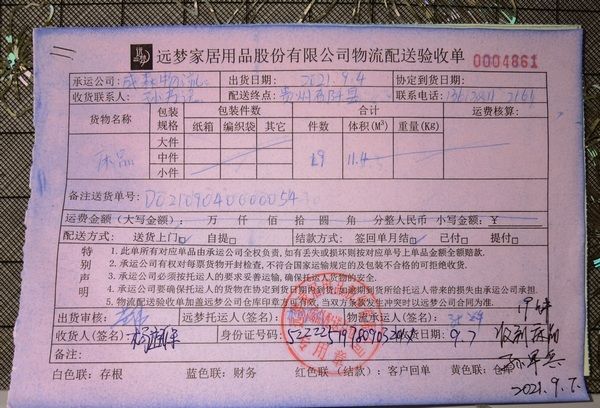 远梦家居用品股份有限公司物流配送验收单 0004861
承运公司: 物流 出货日期: 2021.9.4 协定到货日期:
收货联系人: 配送终点: 贵州 县 联系电话:
货物名称 包装规格 包装件数 合计 运费核算:
纸箱 编织袋 其它 件数 体积(M³) 重量(Kg)
床品 大件 中件 小件 19 11.4
备注送货单号: DO2109040000054
运费金额(大写金额): 万 仟 佰 拾 圆 角 分整人民币 小写金额: ¥
配送方式: 送货上门 自提 结款方式: 签回单月结 已付 提付
特别声明
1. 此单所有对应单品由承运公司全权负责,如有丢失或损坏则按对应单号上单品金额全额赔款.
2. 承运公司有权对每票货物开封检查,不符合国家运输规定的及包装不合格的可拒绝收货.
3. 承运公司必须按托运人的要求妥善运输,确保托运人货物的安全.
4. 承运公司要确保托运人的货物在协定到货日期内到货;如逾期到货所给托运人带来的损失由承运公司承担.
5. 物流配送验收单加盖远梦公司仓库印章方可有效,当双方条款发生冲突时以远梦公司合同为准.
出货审核: 远梦托运人(签名): 物流承运人(签名):
收货人(签名): 身份证号码: 收货日期: 9.7
备注:
白色联: 存根 蓝色联: 财务 红色联(结款): 客户回单 黄色联: 仓
专用章
19件
收到床品
2021.9.7.